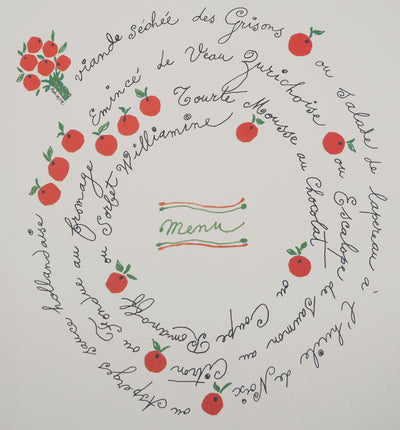 viande séchée des Grisons ou Salade de lapereau à l'huile de Noix ou Asperges sauce hollandaise
Emincé de Veau Zurichoise ou Escalope de Saumon au Citron ou Fondue au fromage
Tourte Mousse au Chocolat ou Coupe Romanoff ou Sorbet Williamine
Menu